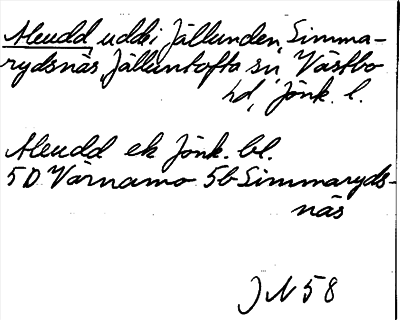 Aleudd, udde i Jällunden, Simma-
rydsnäs, Jälluntofta sn, Västbo
hd, Jönk. l.
Aleudd ek Jönk. bl.
5D Värnamo 5b Simmaryds-
näs
JN 58